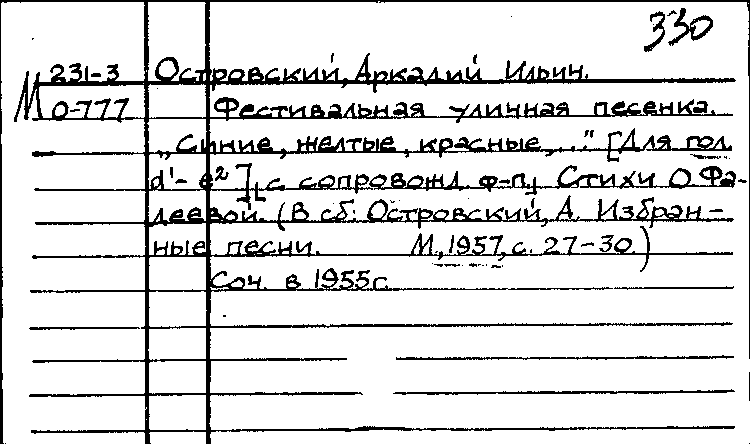 330
М 231-3 Островский, Аркадий Ильич.
О-777 Фестивальная уличная песенка.
„Синие, желтые, красные,..." [Для гол.
d¹- e²], с сопровожд. ф-п. Стихи О Фа-
деевой. (В сб: Островский, А. Избран-
ные песни. М, 1957, с. 27-30.)
Соч. в 1955г.